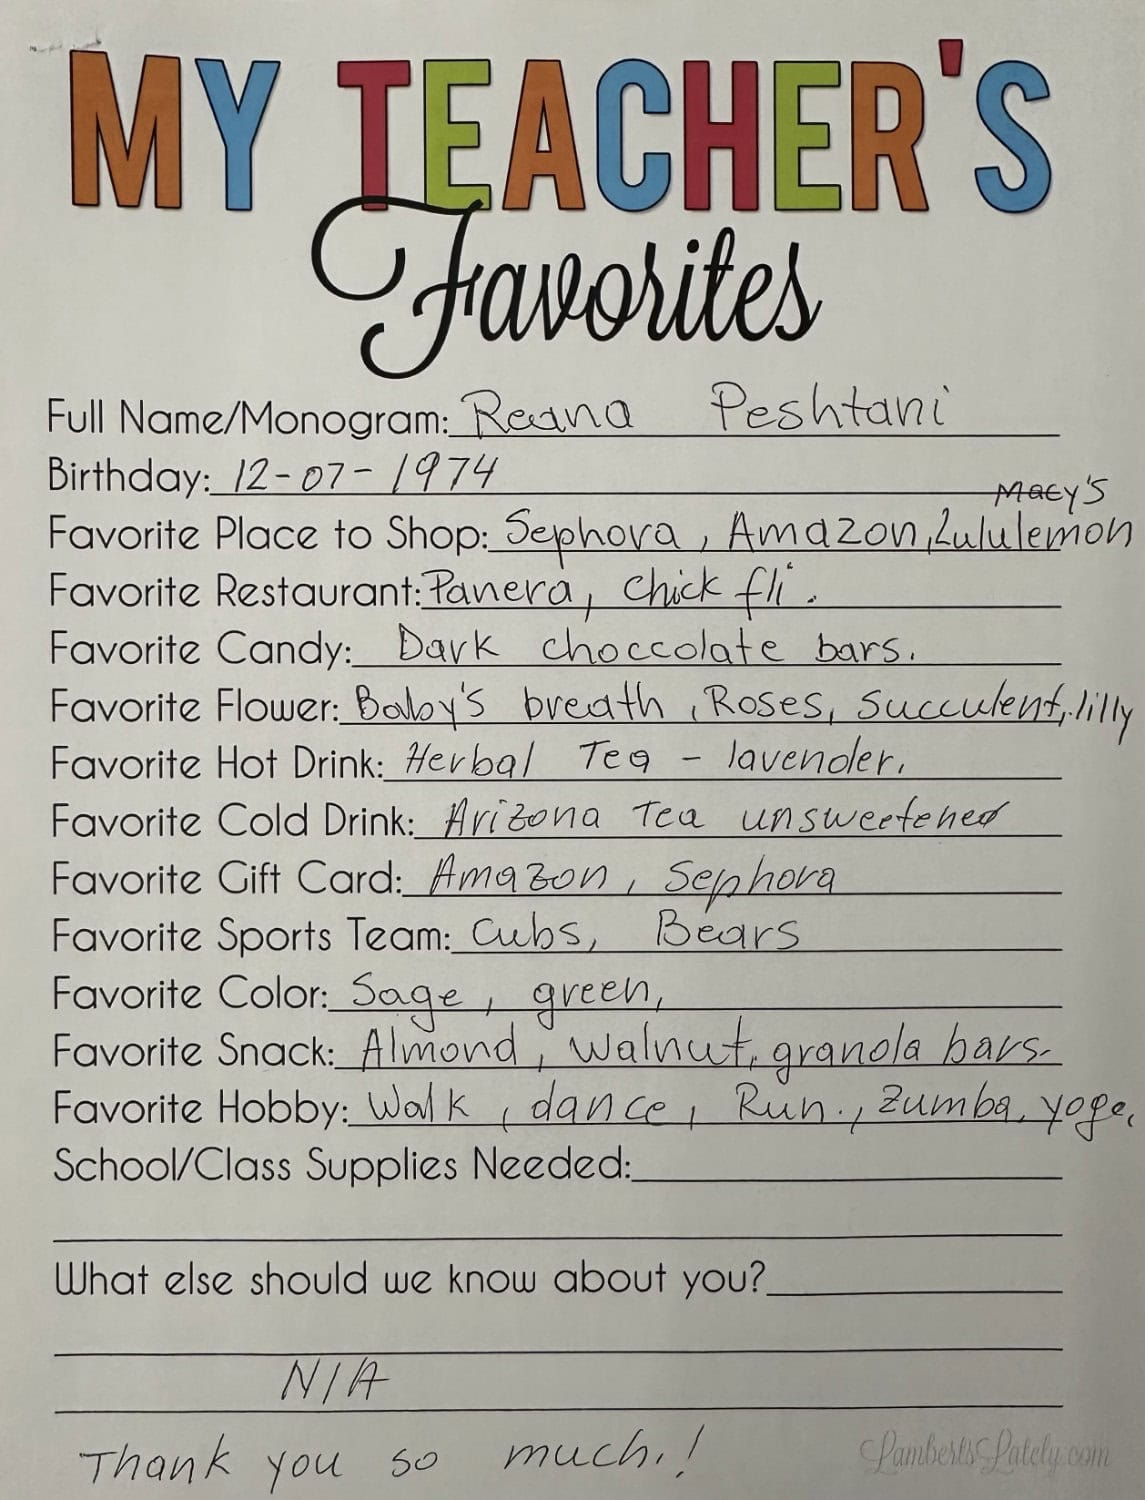 MY TEACHER'S
Favorites
Full Name/Monogram: Reana Peshtani
Birthday: 12-07-1974
Macy's
Favorite Place to Shop: Sephora, Amazon, Lululemon
Favorite Restaurant: Panera, chick fli.
Favorite Candy: Dark choccolate bars.
Favorite Flower: Baby's breath, Roses, succulent, lilly
Favorite Hot Drink: Herbal Tea - lavender.
Favorite Cold Drink: Arizona Tea unsweetened
Favorite Gift Card: Amazon, Sephora
Favorite Sports Team: Cubs, Bears
Favorite Color: Sage, green,
Favorite Snack: Almond, walnut, granola bars.
Favorite Hobby: Walk, dance, Run., zumba, yoge,
School/Class Supplies Needed:
What else should we know about you?
N/A
Thank you so much.!
LambertsLately.com